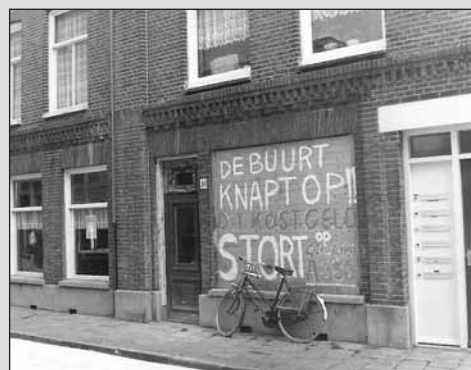 DE BUURT
KNAPT OP!!
DAT KOST GELD
STORT OP